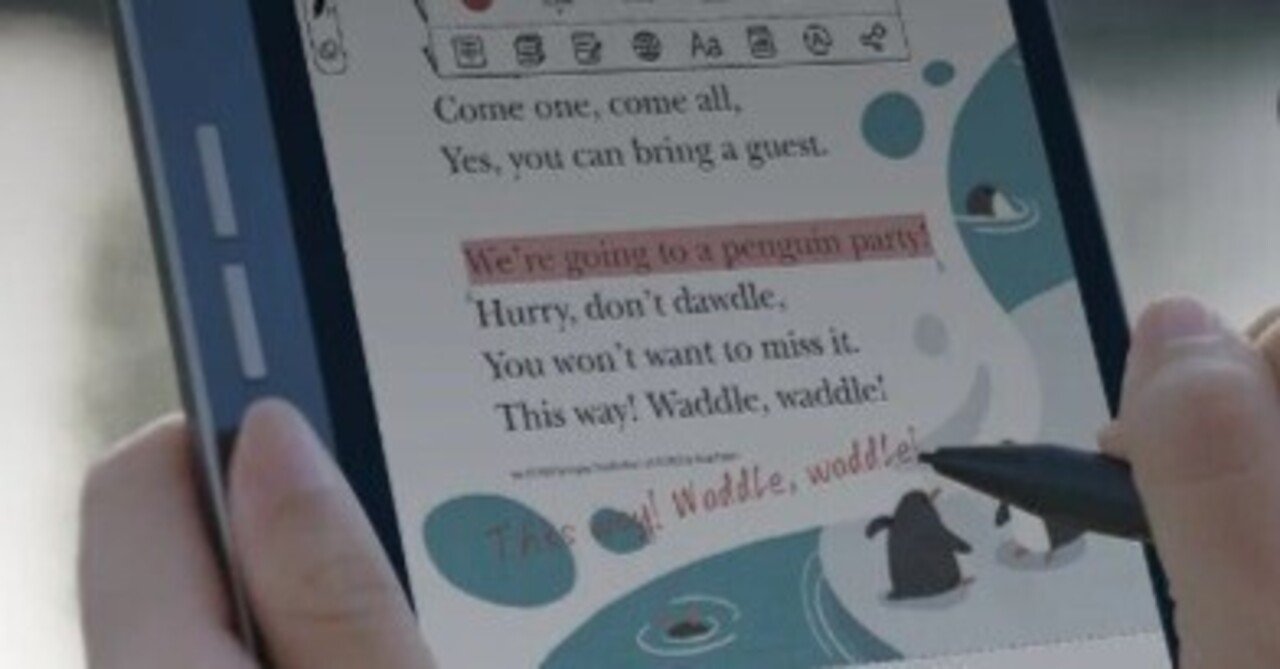 Aa
Come one, come all,
Yes, you can bring a guest.
We're going to a penguin party!
Hurry, don't dawdle,
You won't want to miss it.
This way! Waddle, waddle!
This way! Waddle, waddle!